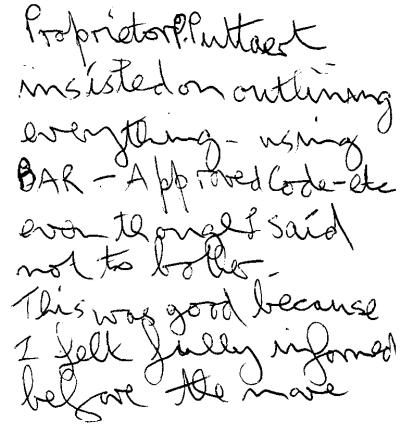 Proprietor P. Puttaert
insisted on outlining
everything - using
BAR - Approved Code - etc
even though I said
not to bother -
This was good because
I felt fully informed
before the move